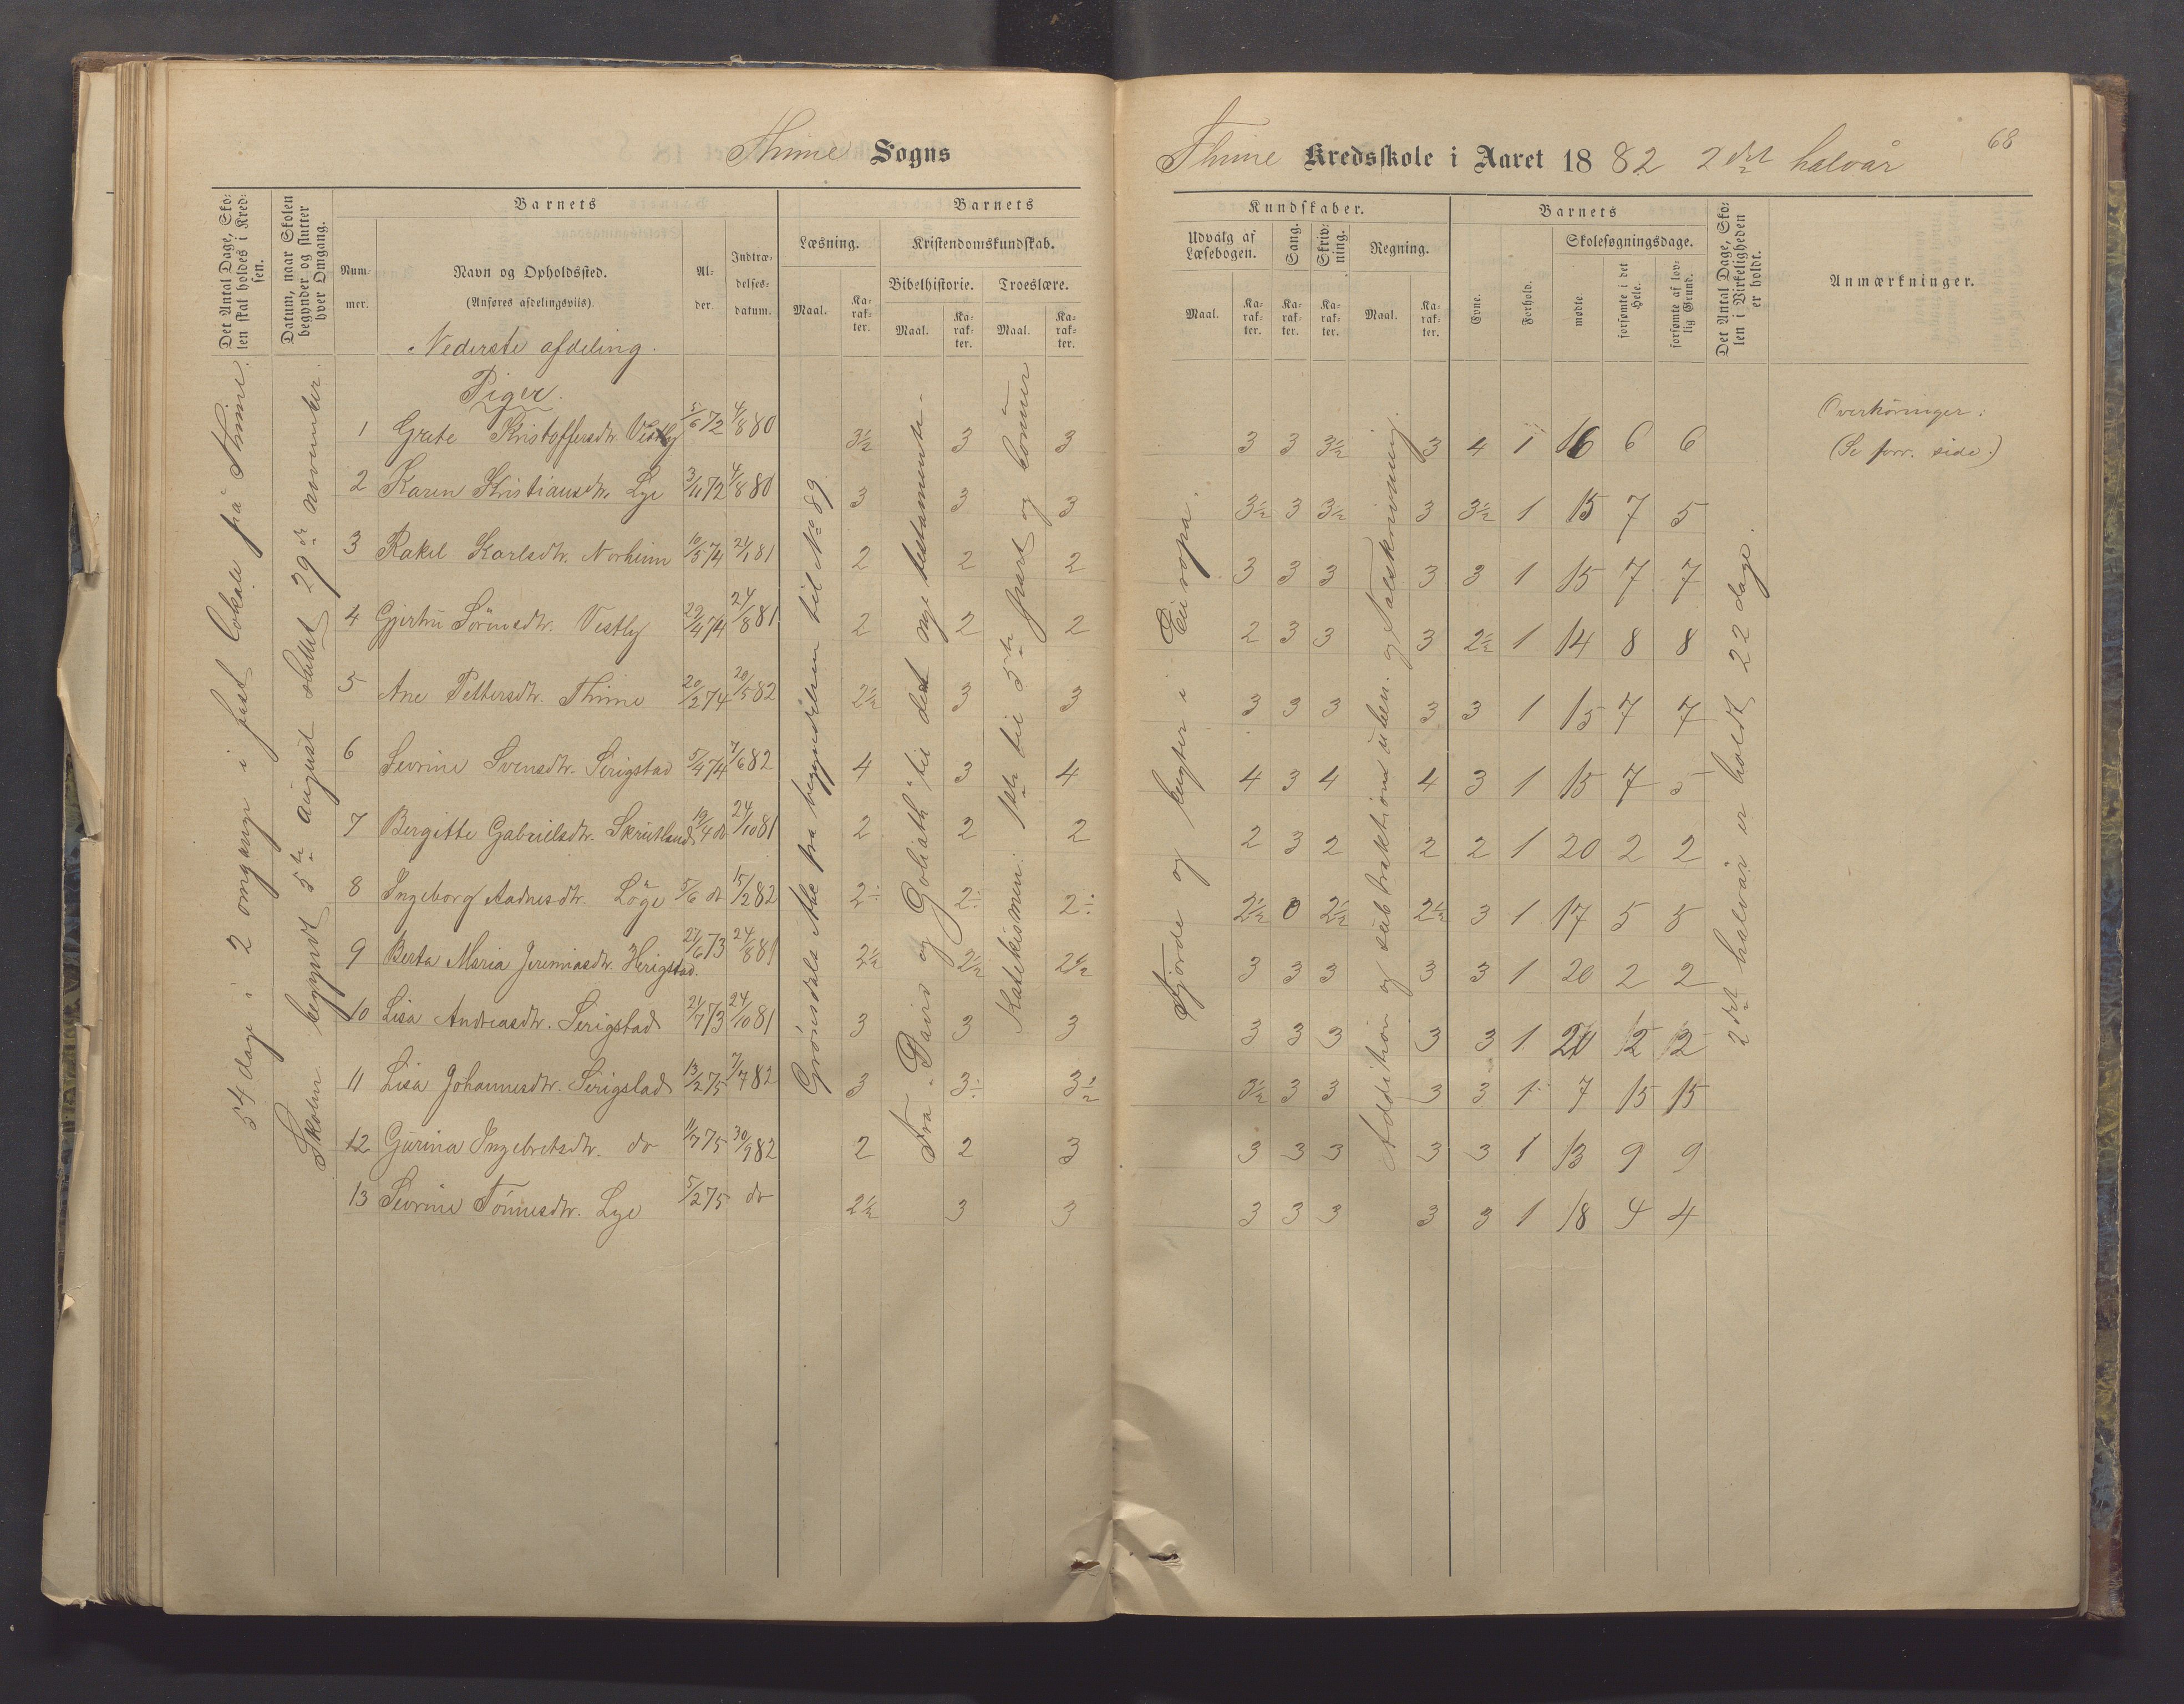 Thime Sogns
Thime Kredsskole i Aaret 1882 2det halvår
68
Det Antal Dage, Skolen skal holdes i Kredsen.
Datum, naar Skolen begynder og slutter hver Omgang.
Barnets
Nummer.
Navn og Opholdssted.
(Anføres afdelingsviis).
Alder.
Indtrædelsesdatum.
Læsning.
Maal.
Karakter.
Barnets
Kristendomskundskab.
Bibelhistorie.
Troeslære.
Maal.
Karakter.
Maal.
Karakter.
Kundskaber.
Udvalg af Læsebogen.
Sang.
Skrivning.
Regning.
Maal.
Karakter.
Karakter.
Karakter.
Maal.
Karakter.
Barnets
Evne.
Forhold.
Skolesøgningsdage.
mødte.
forsømte i det Hele.
forsømte af lovlig Grund.
Det Antal Dage, Skolen i Virkeligheden er holdt.
Anmærkninger.
54 dage i 2 omgange i fast lokale på Thime.
Skolen begyndt 5te august sluttet 29de november.
Nederste afdeling.
Piger.
Grøndals Abc fra begyndelsen til No 89
Fra "David og Goliath" til det nye testamente.
Katekismen: 1ste til 5te part og bönner
Fjorde og bugter i Europa.
Addition og subtraktion uben. og Talskrivning.
2det halvår er holdt 22 dage.
Overhöringer:
(Se forr. side.)
1 Grete Kristoffersdtr. Vestly 5/6 72 4/8 80 3½ 3 3 3 3 3½ 3 4 1 16 6 6
2 Karen Kristiansdtr. Lye 3/11 72 4/8 80 3 3 3 3½ 3 3½ 3 3½ 1 15 7 5
3 Rakel Karlsdtr. Norheim 10/5 74 21/1 81 2 2 2 3 3 3 3 3 1 15 7 7
4 Gjertru Sörensdtr. Vestly 29/4 74 24/8 81 2 2 2 2 3 3 3 2½ 1 14 8 8
5 Ane Pettersdtr. Thime 20/2 74 20/5 82 2½ 3 3 3 3 3 3 3 1 15 7 7
6 Sevrine Svensdtr. Serigstad 5/4 74 7/6 82 4 3 4 4 3 4 4 3 1 15 7 5
7 Bergitte Gabrielsdtr. Skrutland 19/4 do 24/10 81 2 2 2 2 3 2 2 2 1 20 2 2
8 Ingeborg Aadnesdtr. Löge 5/6 do 15/2 82 2÷ 2÷ 2÷ 2½ 0 2½ 2½ 3 1 17 5 5
9 Berta Maria Jeremiasdtr. Herigstad. 27/6 73 24/8 81 2½ 2½ 2½ 3 3 3 3 3 1 20 2 2
10 Lisa Andreasdtr. Serigstad 21/7 73 24/10 81 3 3 3 3 3 3 3 3 1 12 12
11 Lisa Johannesdtr. Serigstad 13/2 75 7/7 82 3 3÷ 3½ 3½ 3 3 3 3 1 7 15 15
12 Gurina Ingebretsdtr. do 11/7 75 30/9 82 2 2 3 3 3 3 3 3 1 13 9 9
13 Sevrine Tönnesdtr. Lye 5/2 75 do 2½ 3 3 3 3 3 3 3 1 18 4 4